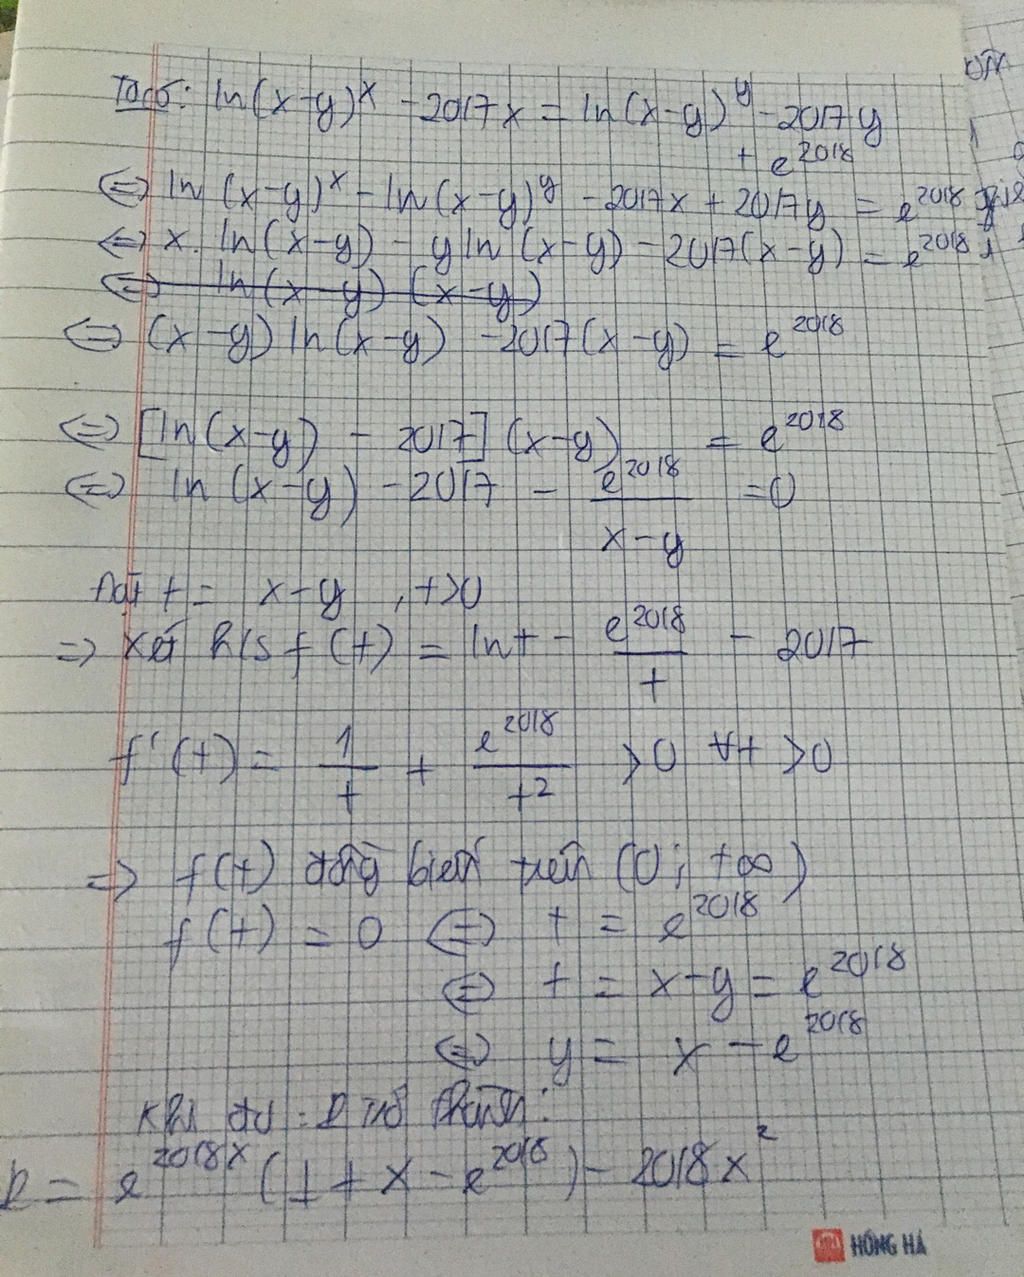 Ta có: ln(x-y)^x - 2017x = ln(x-y)^y - 2017y
+ e^2018
<=> ln(x-y)^x - ln(x-y)^y - 2017x + 2017y = e^2018
<=> x. ln(x-y) - y ln(x-y) - 2017(x-y) = e^2018
<=> ln(x-y) (x-y)
<=> (x-y) ln(x-y) - 2017(x-y) = e^2018
<=> [ln(x-y) - 2017] (x-y) = e^2018
<=> ln(x-y) - 2017 - e^2018/(x-y) = 0
Đặt t = x-y , t>0
=> xét h/s f(t) = lnt - e^2018/t - 2017
f'(t) = 1/t + e^2018/t^2 > 0 ∀t > 0
=> f(t) đồng biến trên (0; +∞)
f(t) = 0 <=> t = e^2018
<=> t = x-y = e^2018
<=> y = x - e^2018
Khi đó: P trở thành:
P = e^2018x (1 + x - e^2018) - 2018x^2
HỒNG HÀ